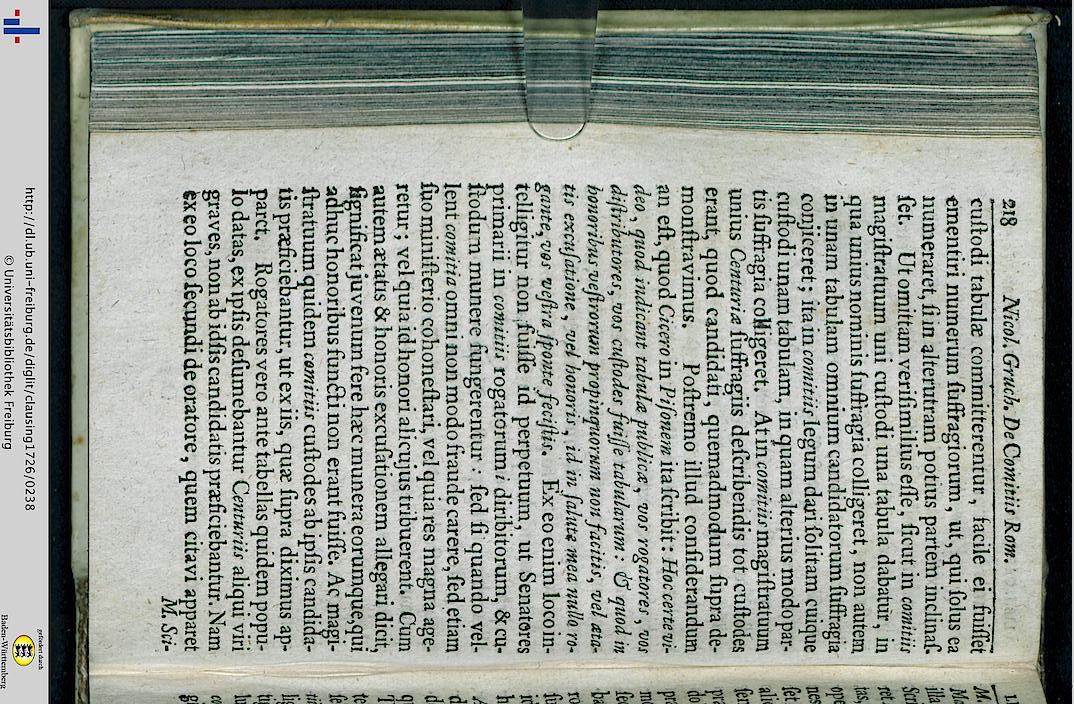 218 Nicol. Gruch. De Comitiis Rom.
cuſtodi tabulæ committerentur, facile ei fuiſſet
ementiri numerum ſuffragiorum, ut, qui ſolus ea
numeraret, ſi in alterutram potius partem inclinaſ-
ſet. Ut omittam veriſimilius eſſe, ſicut in comitiis
magiſtratuum uni cuſtodi una tabula dabatur, in
qua unius nominis ſuffragia colligeret, non autem
in unam tabulam omnium candidatorum ſuffragia
conjiceret; ita in comitiis legum dari ſolitam cuique
cuſtodi unam tabulam, in quam alterius modo par-
tis ſuffragia colligeret. At in comitiis magiſtratuum
unius Centuriæ ſuffragiis deſcribendis tot cuſtodes
erant, quod candidati, quemadmodum ſupra de-
monſtravimus. Poſtremo illud conſiderandum
an eſt, quod Cicero in Piſonem ita ſcribit: Hoc certe vi-
deo, quod indicant tabulæ publicæ, vos rogatores, vos
diſtributores, vos cuſtodes fuiſſe tabularum: & quod in
honoribus veſtrorum propinquorum non facitis, vel æta-
tis excuſatione, vel honoris, id in ſalute mea nullo ro-
gante, vos veſtra ſponte feciſtis. Ex eo enim loco in-
telligitur non fuiſſe id perpetuum, ut Senatores
primarii in comitiis rogatorum, diribitorum, & cu-
ſtodum munere fungerentur: ſed ſi quando vel-
lent comitia omni non modo fraude carere, ſed etiam
ſuo miniſterio cohoneſtari, vel quia res magna age-
retur; vel quia id honori alicujus tribuerent. Cum
autem ætatis & honoris excuſationem allegari dicit,
ſignificat juvenum fere hæc munera eorumque, qui
adhuc honoribus functi non erant fuiſſe. Ac magi-
ſtratuum quidem comitiis cuſtodes ab ipſis candida-
tis præficiebantur, ut ex iis, quæ ſupra diximus ap-
paret. Rogatores vero ante tabellas quidem popu-
lo datas, ex ipſis deſumebantur Centuriis aliqui viri
graves, non ab idiis candidatis præficiebantur. Nam
ex eo loco ſecundi de oratore, quem citavi apparet
M. Sci-
http://dl.ub.uni-freiburg.de/diglit/clausing1726/0238
© Universitätsbibliothek Freiburg
gefördert durch
Baden-Württemberg